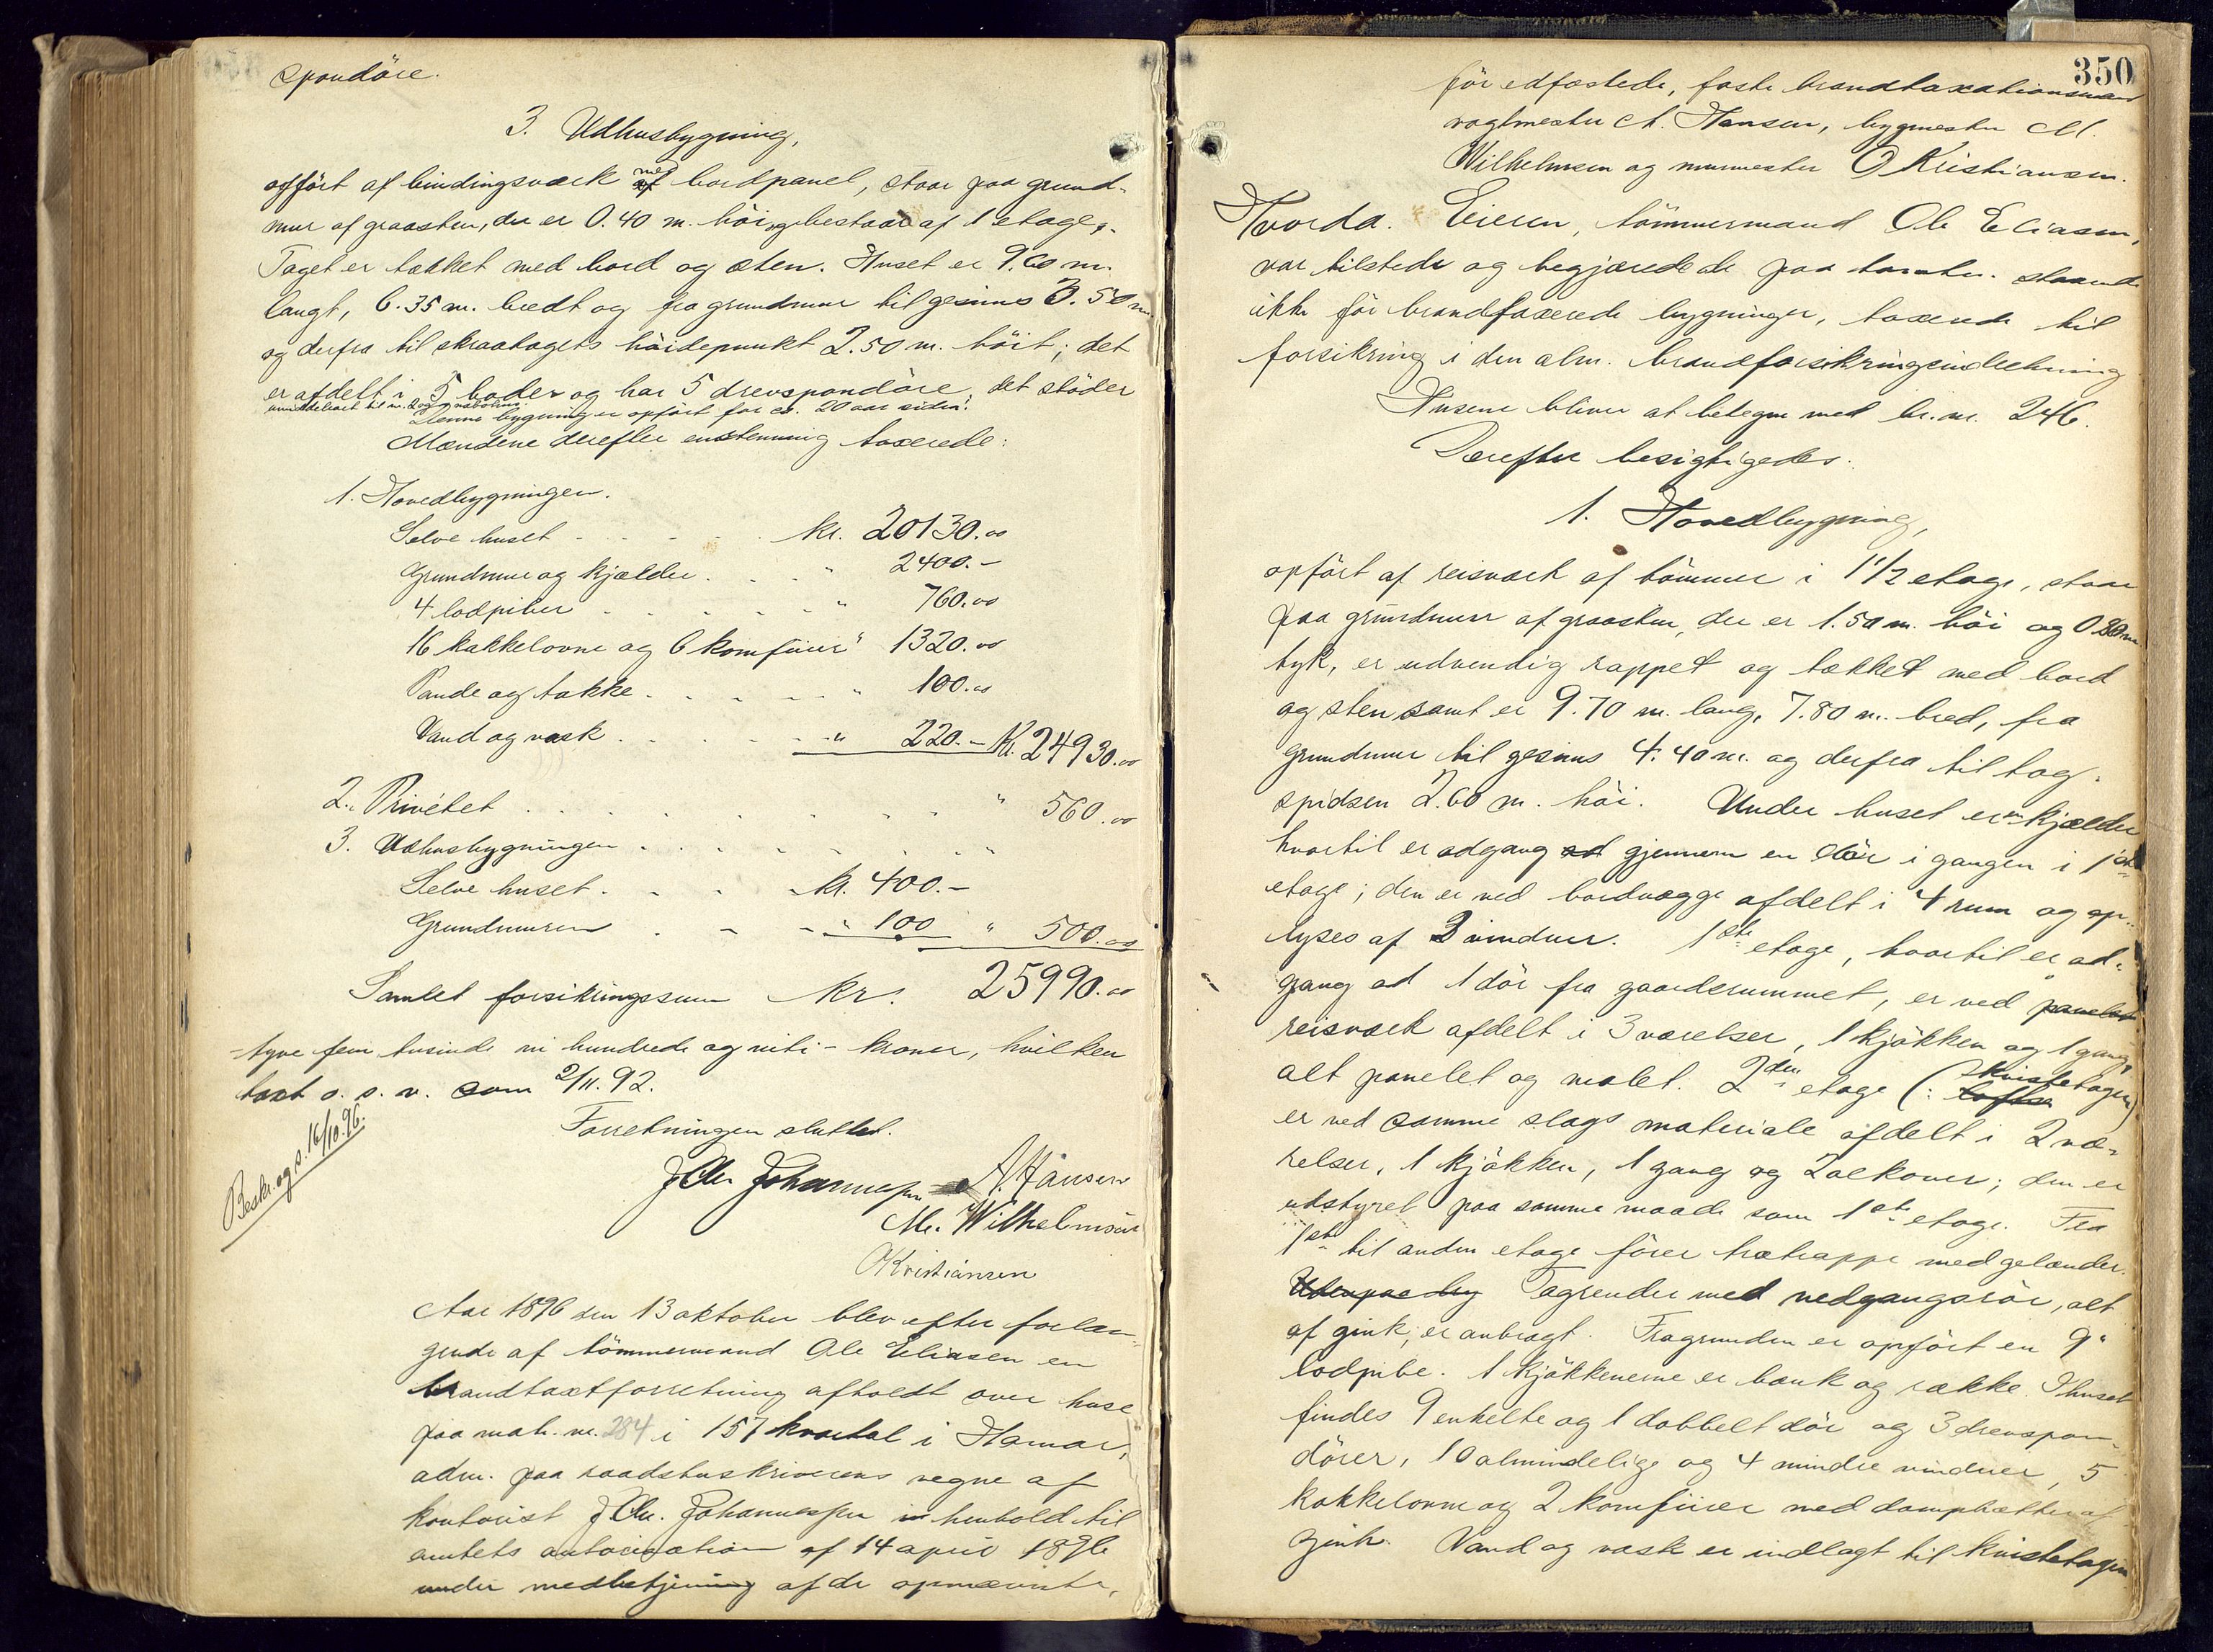 spondöre.
3. Udhusbygning,
opfört af bindingsværk med bordpanel, staar paa grund-
mur af graasten, der er 0.40 m. höi, og bestaar af 1 etage.
Taget er tækket med bord og sten. Huset er 9.60 m.
langt, 6.35 m. bredt og fra grundmur til gesims 3.50 m.
og derfra til skraatagets höidepunkt 2.50 m. höit; det
er afdelt i 5 boder og har 5 drevspondöre, det stöder
umiddelbart til nr. 2 og
Denne bygning er opfört for ca. 20 aar siden.
Mændene derefter enstemmig taxerede:
1. Hovedbygningen.
Selve huset - - - kr. 20130.00
Grundmur og kjælder . . " 2400.-
4 lodpiber . . . " 760.00
16 kakkelovne og 6 komfurer " 1320.00
Pande og takke . . . " 100.00
Vand og vask . . . " 220.- Kr. 24930.00
2. Privetet . . . " 560.00
3. Udhusbygningen . . . "
Selve huset . . . kr. 400.-
Grundmuren . . . " 100 " 500.00
Samlet forsikringssum kr. 25990.00
- tyve fem tusinde ni hundrede og niti - kroner, hvilken
taxt o. s. v. som 2/11. 92.
Forretningen sluttet.
Beskr. og s. 16/10.96.
J Chr Johannessen A. Hansen
M. Wilhelmsen
O Kristiansen
Aar 1896 den 13 oktober blev efter forlan-
gende af tömmermand Ole Eliasen en
brandtaxtforretning afholdt over huse
paa matr. nr. 284 i 157 kvartal i Hamar,
adm. paa raadstuskriverens vegne af
kontorist J Chr. Johannessen i henhold til
amtets autorisation af 14 april 1896
under medbetjening af de opnævnte,
350
för edfæstede, faste brandtaxationsmænd
vagtmester A. Hansen, bygmester M.
Wilhelmsen og murmester O Kristiansen.
Hvorda. Eieren, tömmermand Ole Eliasen,
var tilstede og begjærede de paa tomten staaende
ikke för brandtaxerede bygninger, taxerede til
forsikring i den alm. brandforsikringsindretning
Husene bliver at betegne med br. nr. 246.
Derefter besigtigedes:
1. Hovedbygning,
opfört af reisværk af tömmer i 1 1/2 etage, staar
paa grundmur af graasten, der er 1.50 m. höi og 0.80 m
tyk, er udvendig rappet og tækket med bord
og sten samt er 9.70 m. lang, 7.80 m. bred, fra
grundmur til gesims 4.40 m. og derfra til tag-
spidsen 2.60 m. höi. Under huset er en kjælder
hvortil er adgang ad gjennem en dör i gangen i 1ste
etage; den er ved bordvægge afdelt i 4 rum og op-
lyses af 3 vinduer. 1ste etage, hvortil er ad-
gang ad 1 dör fra gaardsrummet, er ved panelet
reisværk afdelt i 3 værelser, 1 kjökken og 1 gang,
alt panelet og malet. 2den etage (: loftse kvistetagen)
er ved samme slags materiale afdelt i 2 væ-
relser, 1 kjökken, 1 gang og 2 alkover; den er
udstyret paa samme maade som 1ste etage. Fra
1ste til anden etage förer trætrappe med gelænder.
Tagrender med nedgangsrör, alt
af zink, er anbragt. Fra grunden er opfört en 9"
lodpibe. I kjökkenerne er bænk og række. I huset
findes 9 enkelte og 1 dobbelt dör og 3 drevspon-
dörer, 10 almindelige og 4 mindre vinduer, 5
kakkelovne og 2 komfurer med damphætter af
zink. Vand og vask er indlagt til kvistetagen